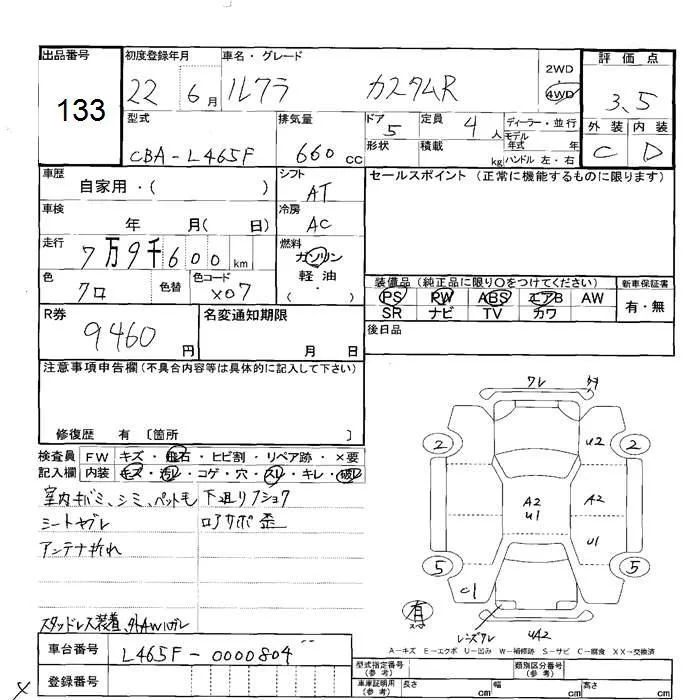 出品番号
133
初度登録年月
22 6月
車名・グレード
ルクラ カスタムR
2WD
・
4WD
評価点
3.5
外装 内装
C D
型式
CBA-L465F
排気量
660cc
ドア
5
定員
4人
ディーラー・並行
モデル年式 年
形状
積載 kg
ハンドル 左・右
車歴
自家用・( )
シフト
AT
セールスポイント (正常に機能するものに限ります)
車検
年 月( 日)
冷房
AC
走行
7万9千600km
燃料
ガソリン
軽油
・( )
色
クロ
色替
色コード
X07
装備品 (純正品に限り〇をつけてください)
PS RW ABS エアB AW
SR ナビ TV カワ
新車保証書
有・無
R券
9460円
名変通知期限
月 日
後日品
注意事項申告欄(不具合内容等は具体的に記入して下さい)
修復歴 有 〔箇所 〕
検査員
記入欄
FW キズ・飛石・ヒビ割・リペア跡・×要
内装 キズ・汚レ・コゲ・穴・スレ・キレ・破レ
室内キバミ、シミ、ペット毛
下廻リフショク
シートヤブレ
ロアサポ歪
アンテナ折れ
スタッドレス装着、外AWハガレ
ワレ
U2
2 2
A2
U1
A2
U1
5 5
C1
有
レンズワレ
UA2
A-キズ E-エクボ U-凹み W-補修跡 S-サビ C-腐食 XX-交換済
車台番号
L465F-0000804
登録番号
型式指定番号
(参考)
類別区分番号
(参考)
車庫証明用
(参考)
長さ cm
幅 cm
高さ cm